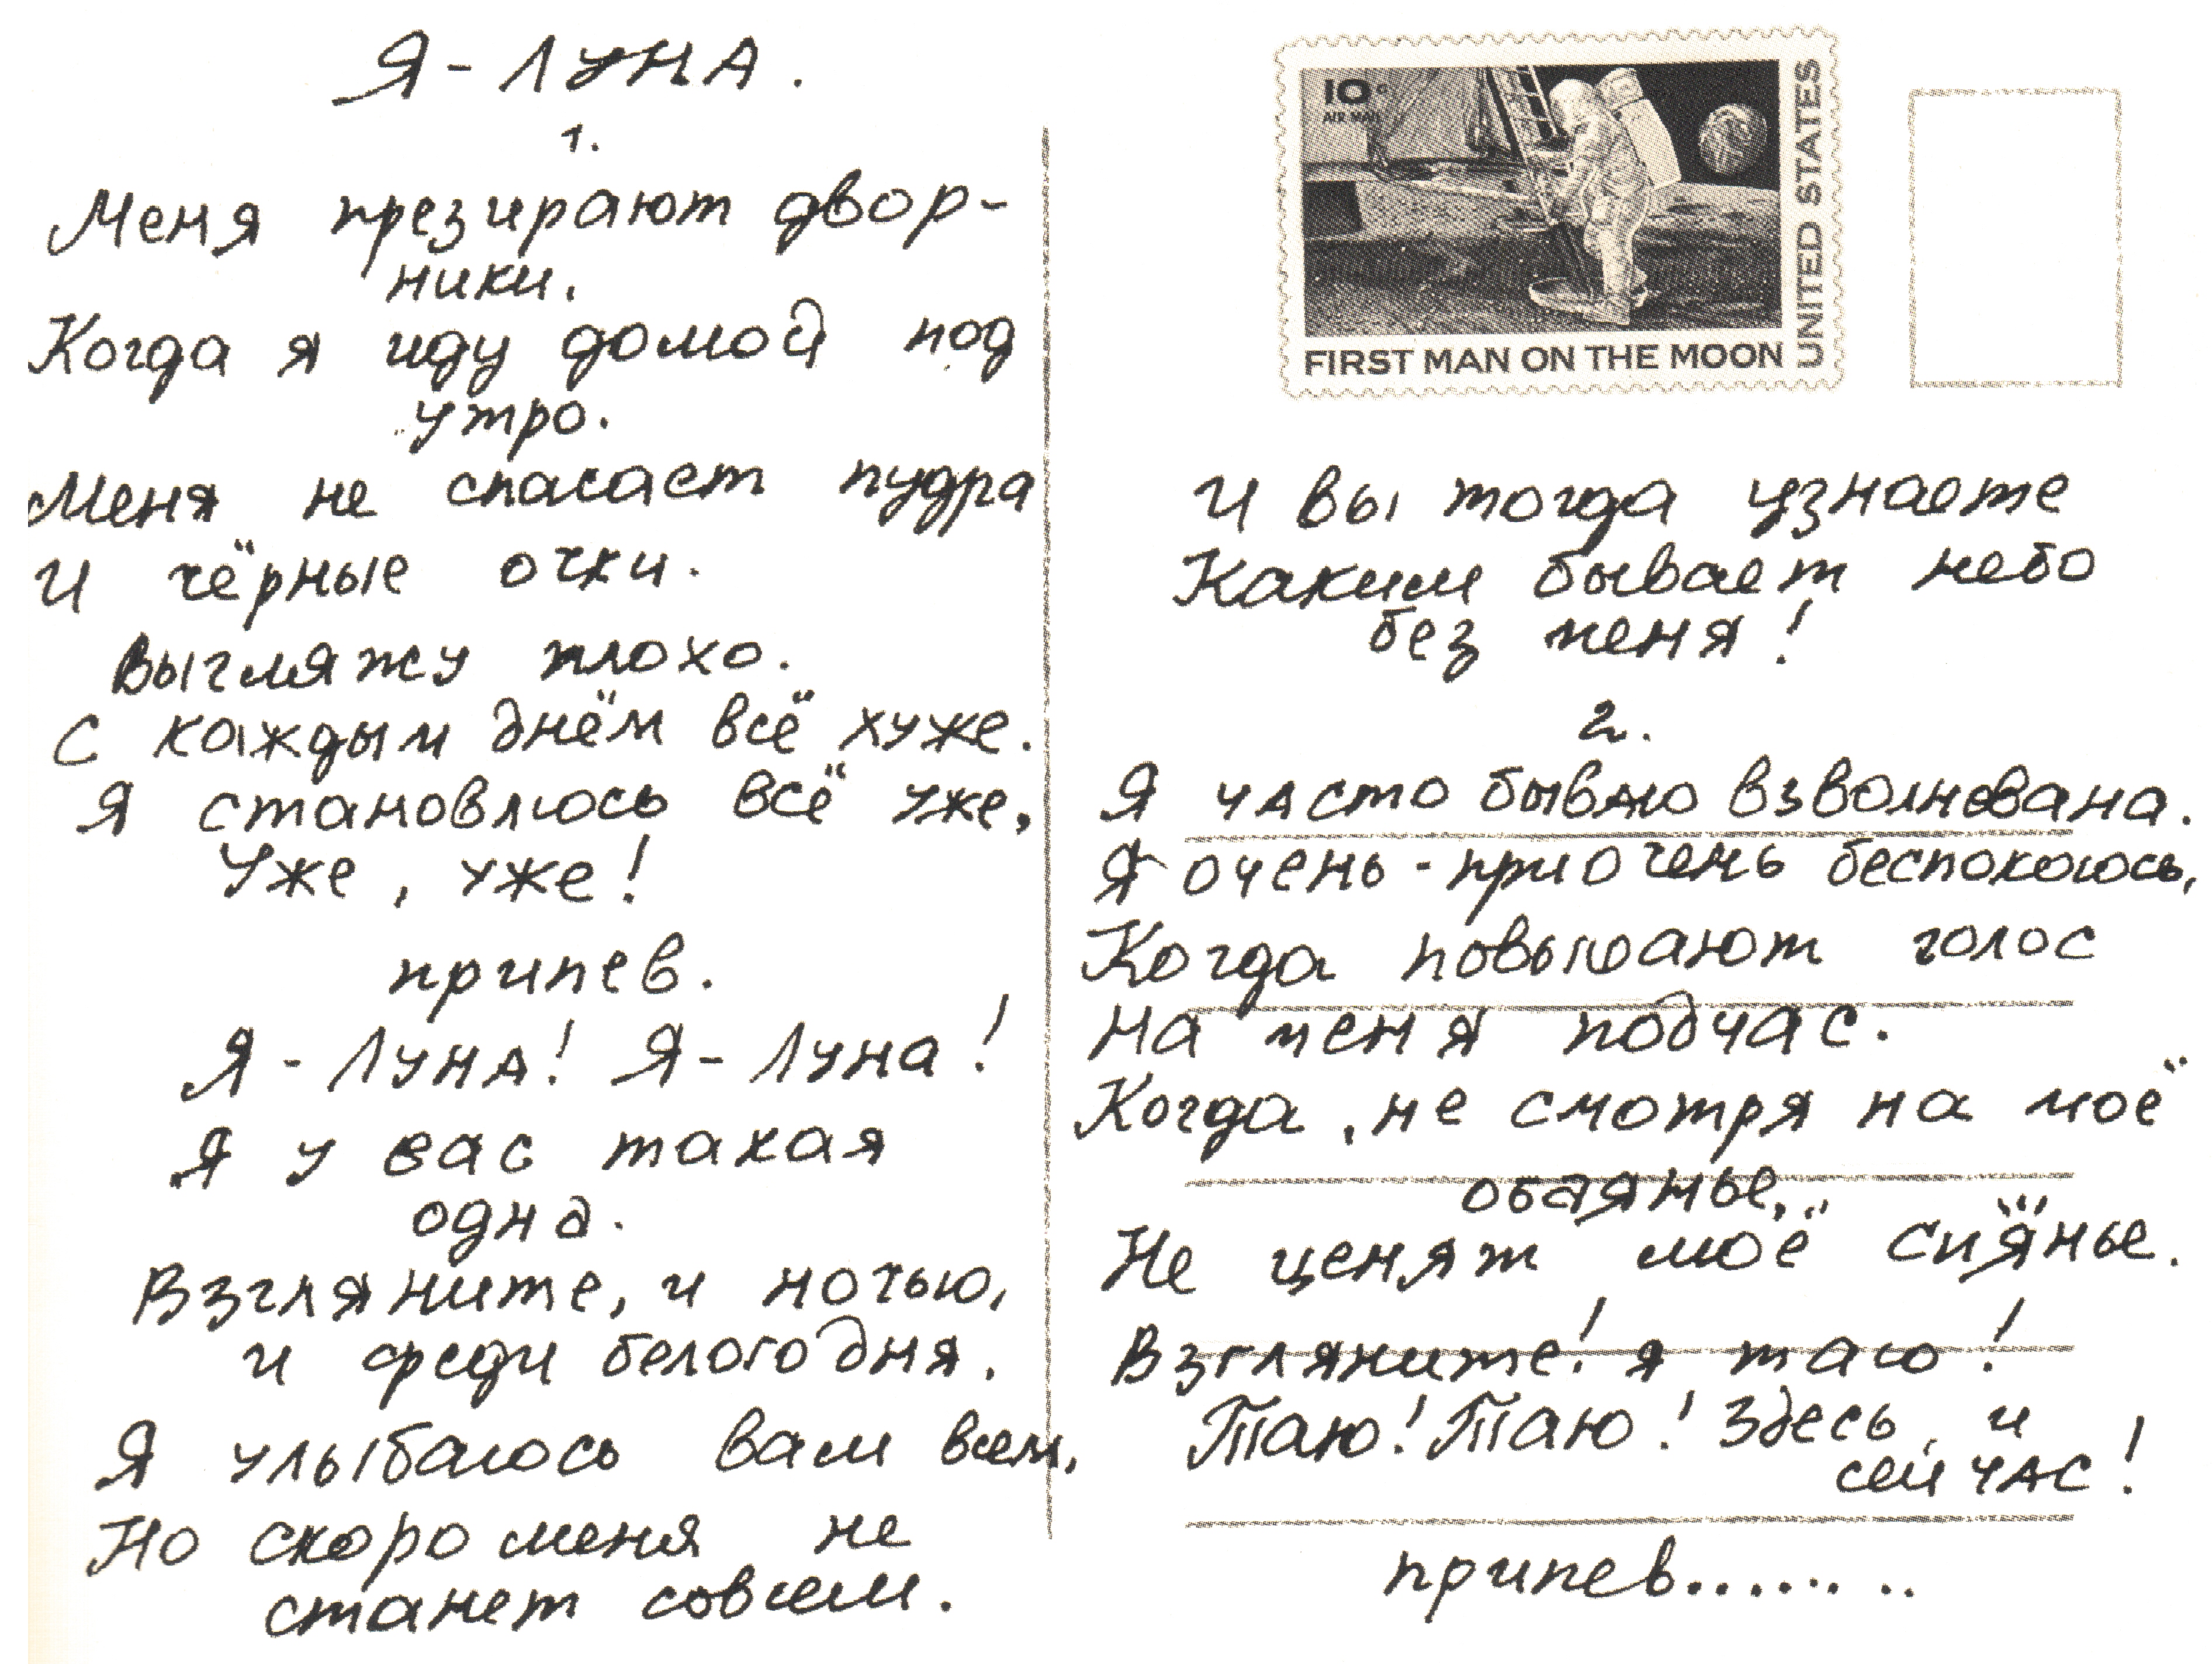 Я - Луна.
1.
Меня презирают двор-
ники.
Когда я иду домой под
утро.
Меня не спасает пудра
И чёрные очки.
Выгляжу плохо.
С каждым днём всё хуже.
Я становлюсь всё уже,
Уже, уже!
припев.
Я - Луна! Я - Луна!
Я у вас такая
одна.
Взгляните, и ночью,
и среди белого дня.
Я улыбаюсь вам всем,
Но скоро меня не
станет совсем.
10c
AIR MAIL
FIRST MAN ON THE MOON
UNITED STATES
И вы тогда узнаете
Каким бывает небо
без меня!
2.
Я часто бываю взволнована.
Я очень - приочень беспокоюсь,
Когда повышают голос
На меня подчас.
Когда, не смотря на моё
обаянье,
Не ценят моё сиянье.
Взгляните! я таю!
Таю! Таю! Здесь, и
сейчас!
припев.........